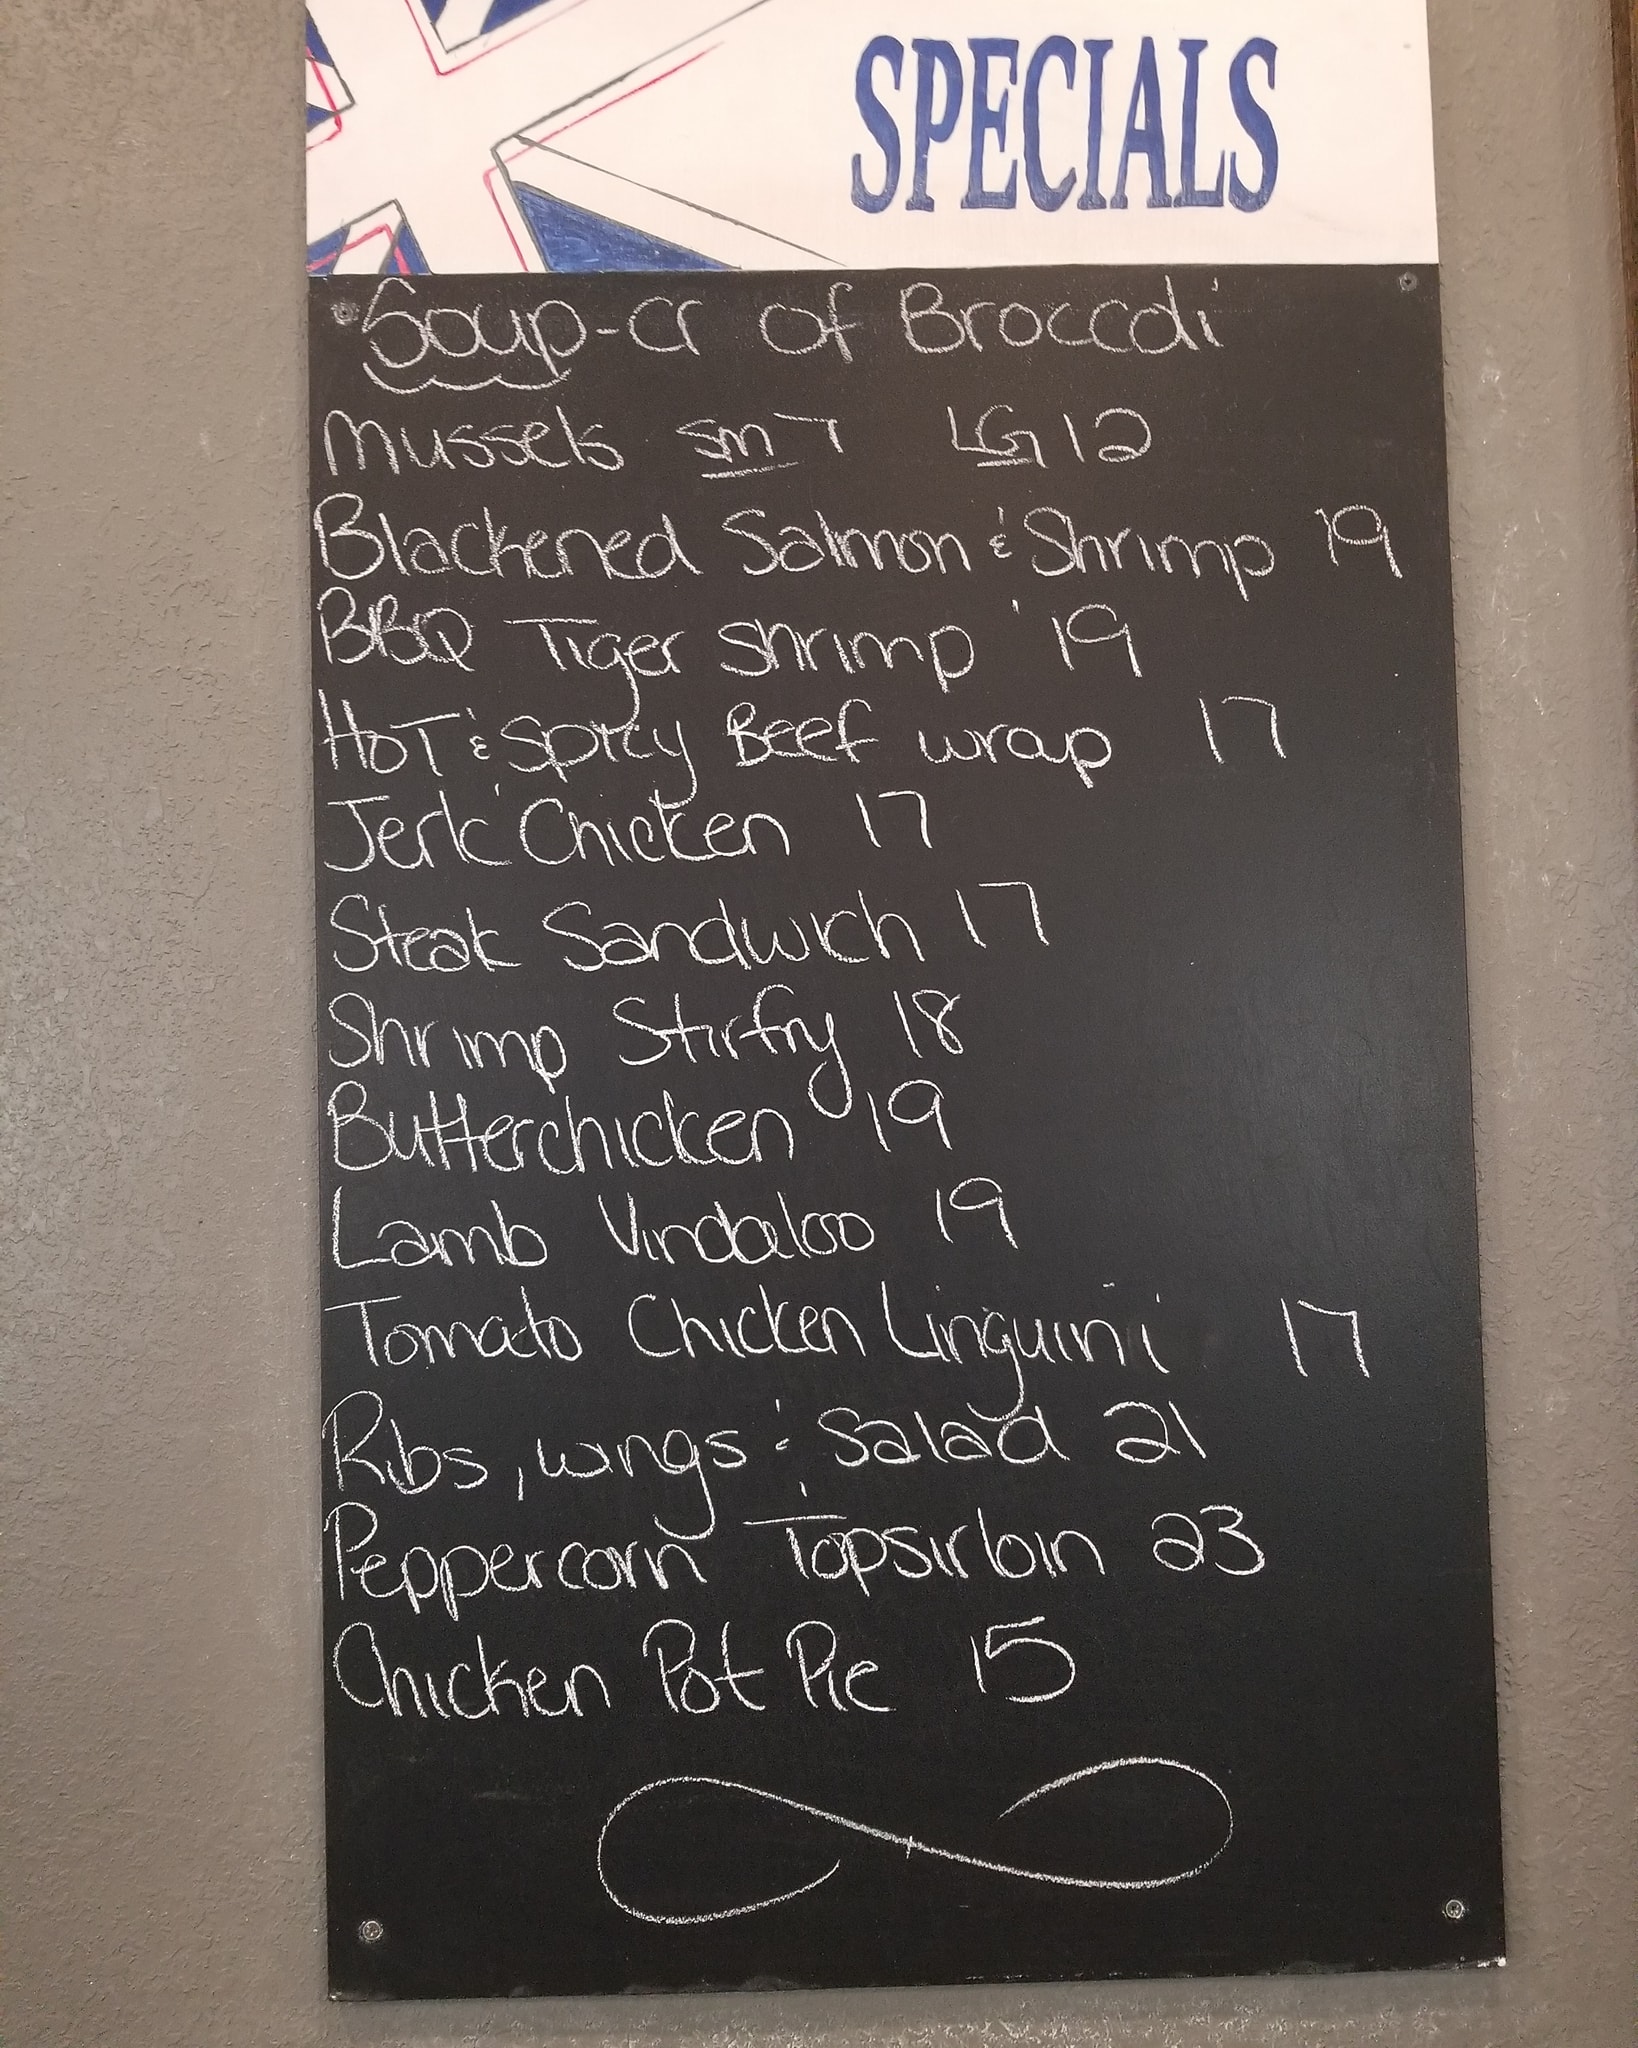 SPECIALS
Soup-cr of Broccoli
Mussels sm 7 LG 12
Blackened Salmon & Shrimp 19
BBQ Tiger shrimp 19
HOT & Spicy Beef wrap 17
Jerk Chicken 17
Steak Sandwich 17
Shrimp Stirfry 18
Butterchicken 19
Lamb Vindaloo 19
Tomato Chicken Linguini 17
Ribs, wings & Salad 21
Peppercorn Topsirloin 23
Chicken Pot Pie 15